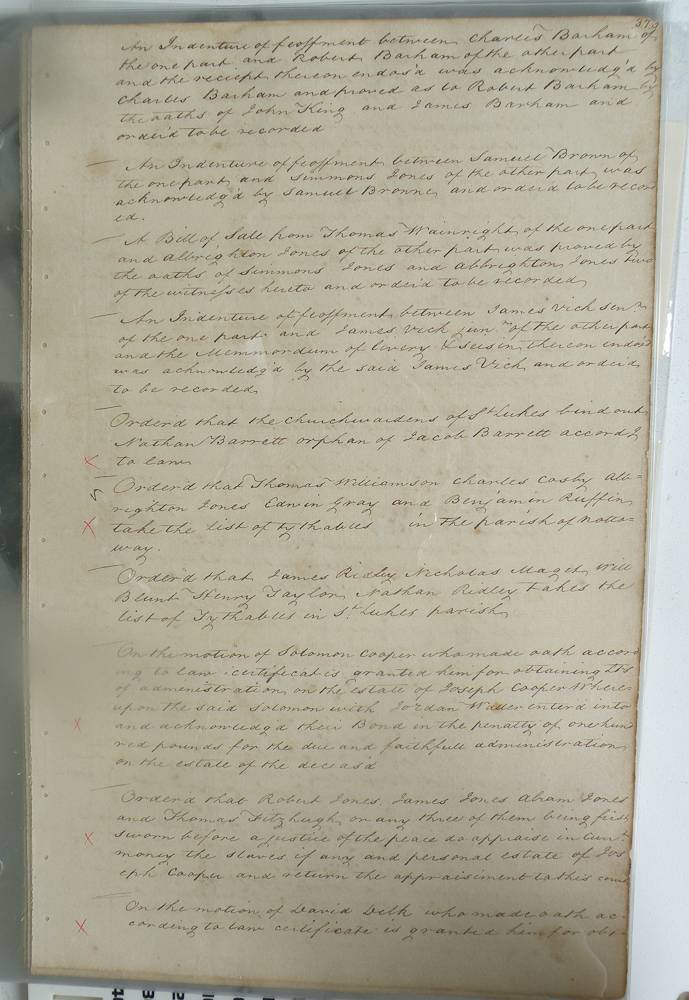 An Indenture of feoffment between Charles Barham of
the one part and Robert Barham of the other part
and the reciept thereon endos'd was acknowledg'd by
Charles Barham and proved as to Robert Barham by
the oaths of John King and James Barham and
order'd to be recorded
An Indenture of feoffment between Samuel Brown of
the one part and Simmons Jones of the other part was
acknowledg'd by Samuel Browne and order'd to be recor
ed.
A Bill of Sale from Thomas Wainright of the one part
and Albrighton Jones of the other part was proved by
the oaths of Simmons Jones and Abbrighton Jones two
of the witnesses hereto and order'd to be recorded
An Indenture of feoffment between James Vick senr
of the one part and James Vick junr of the other part
and the Memmordum of livery & seisin thereon indors'd
was acknowledg'd by the said James Vick and order'd
to be recorded
Orderd that the churchwardens of St Lukes bind out
Nathan Barrett orphan of Jacob Barrett accordg
to law
Orderd that Thomas Williamson Charles Cosby Alb=
righton Jones Edwin Gray and Benjamin Ruffin
take the list of tythables in the parish of Notto=
way.
Order'd that James Ridley Nicholas Maget Will
Blunt Henry Taylor Nathan Ridley takes the
list of Tythables in St Lukes parish
On the motion of Solomon Cooper who made oath accord
ing to law certificat is granted him for obtaining Lts
of administration on the estate of Joseph Cooper Where
upon the said Solomon with Jordan enterd into
and acknowledgd their Bond in the penalty of one hun
red pounds for the due and faithfull administration
on the estate of the deceas'd
Orderd that Robert Jones, James Jones Abram Jones
and Thomas Fitzhugh or any three of them being first
sworn before a justice of the peace do appraise in Curt
money the slaves if any and personal estate of Jos
eph Cooper and return the appraisiment to this court
On the motion of David Delk who made oath ac
cording to law certificate is granted him for obt